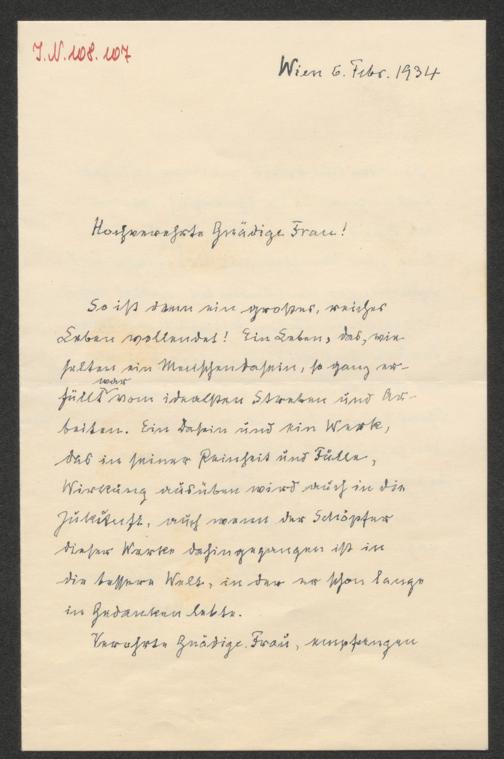 J.N. 108.107
Wien 6. Febr. 1934
Hochverehrte Gnädige Frau!
So ist denn ein großes, reiches
Leben vollendet! Ein Leben, das, wie
selten ein Menschendasein, so ganz er-
war
füllt vom idealsten Streben und Ar-
beiten. Ein Dasein und ein Werk,
das in seiner Reinheit und Fülle,
Wirkung ausüben wird auch in die
Zukunft, auch wenn der Schöpfer
dieser Werke dahingegangen ist in
die bessere Welt, in der er schon lange
in Gedanken lebte.
Verehrte Gnädige Frau, empfangen